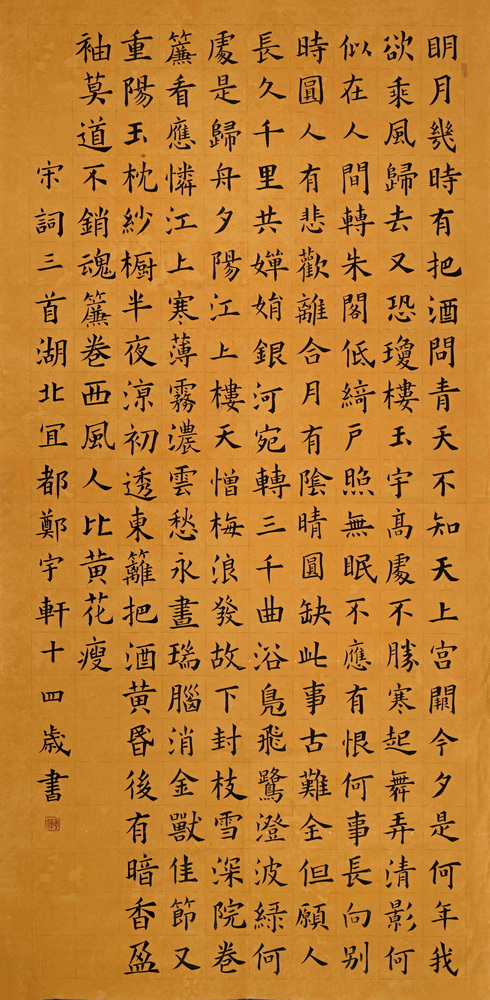 明月幾時有把酒問青天不知天上宮闕今夕是何年我
欲乘風歸去又恐瓊樓玉宇高處不勝寒起舞弄清影何
似在人間轉朱閣低綺戶照無眠不應有恨何事長向別
時圓人有悲歡離合月有陰晴圓缺此事古難全但願人
長久千里共嬋娟銀河宛轉三千曲浴鳧飛鷺澄波綠何
處是歸舟夕陽江上樓天憎梅浪發故下封枝雪深院卷
簾看應憐江上寒薄霧濃雲愁永晝瑞腦消金獸佳節又
重陽玉枕紗橱半夜涼初透東籬把酒黃昏後有暗香盈
袖莫道不銷魂簾卷西風人比黃花瘦
宋詞三首湖北宜都鄭宇軒十四歲書